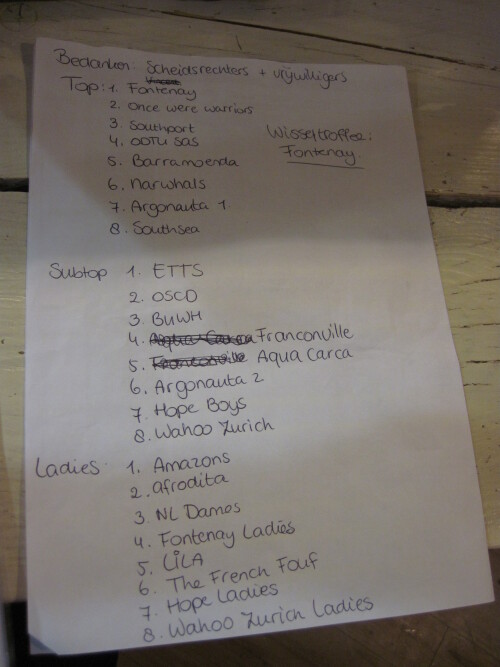 Bedanken: Scheidsrechters + vrijwilligers
Top: 1. Fontenay
2. Once were warriors
3. Southport
4. ODTU SAS
5. Barramoenda
6. Narwhals
7. Argonauta 1
8. Southsea
Wisseltroffee:
Fontenay.
Subtop 1. ETTS
2. OSCD
3. BUWH
4. Aqua Carca Franconville
5. Franconville Aqua Carca
6. Argonauta 2
7. Hope Boys
8. Wahoo Zurich
Ladies: 1. Amazons
2. afrodita
3. NL Dames
4. Fontenay Ladies
5. LiLA
6. The French Fouf
7. Hope Ladies
8. Wahoo Zurich Ladies